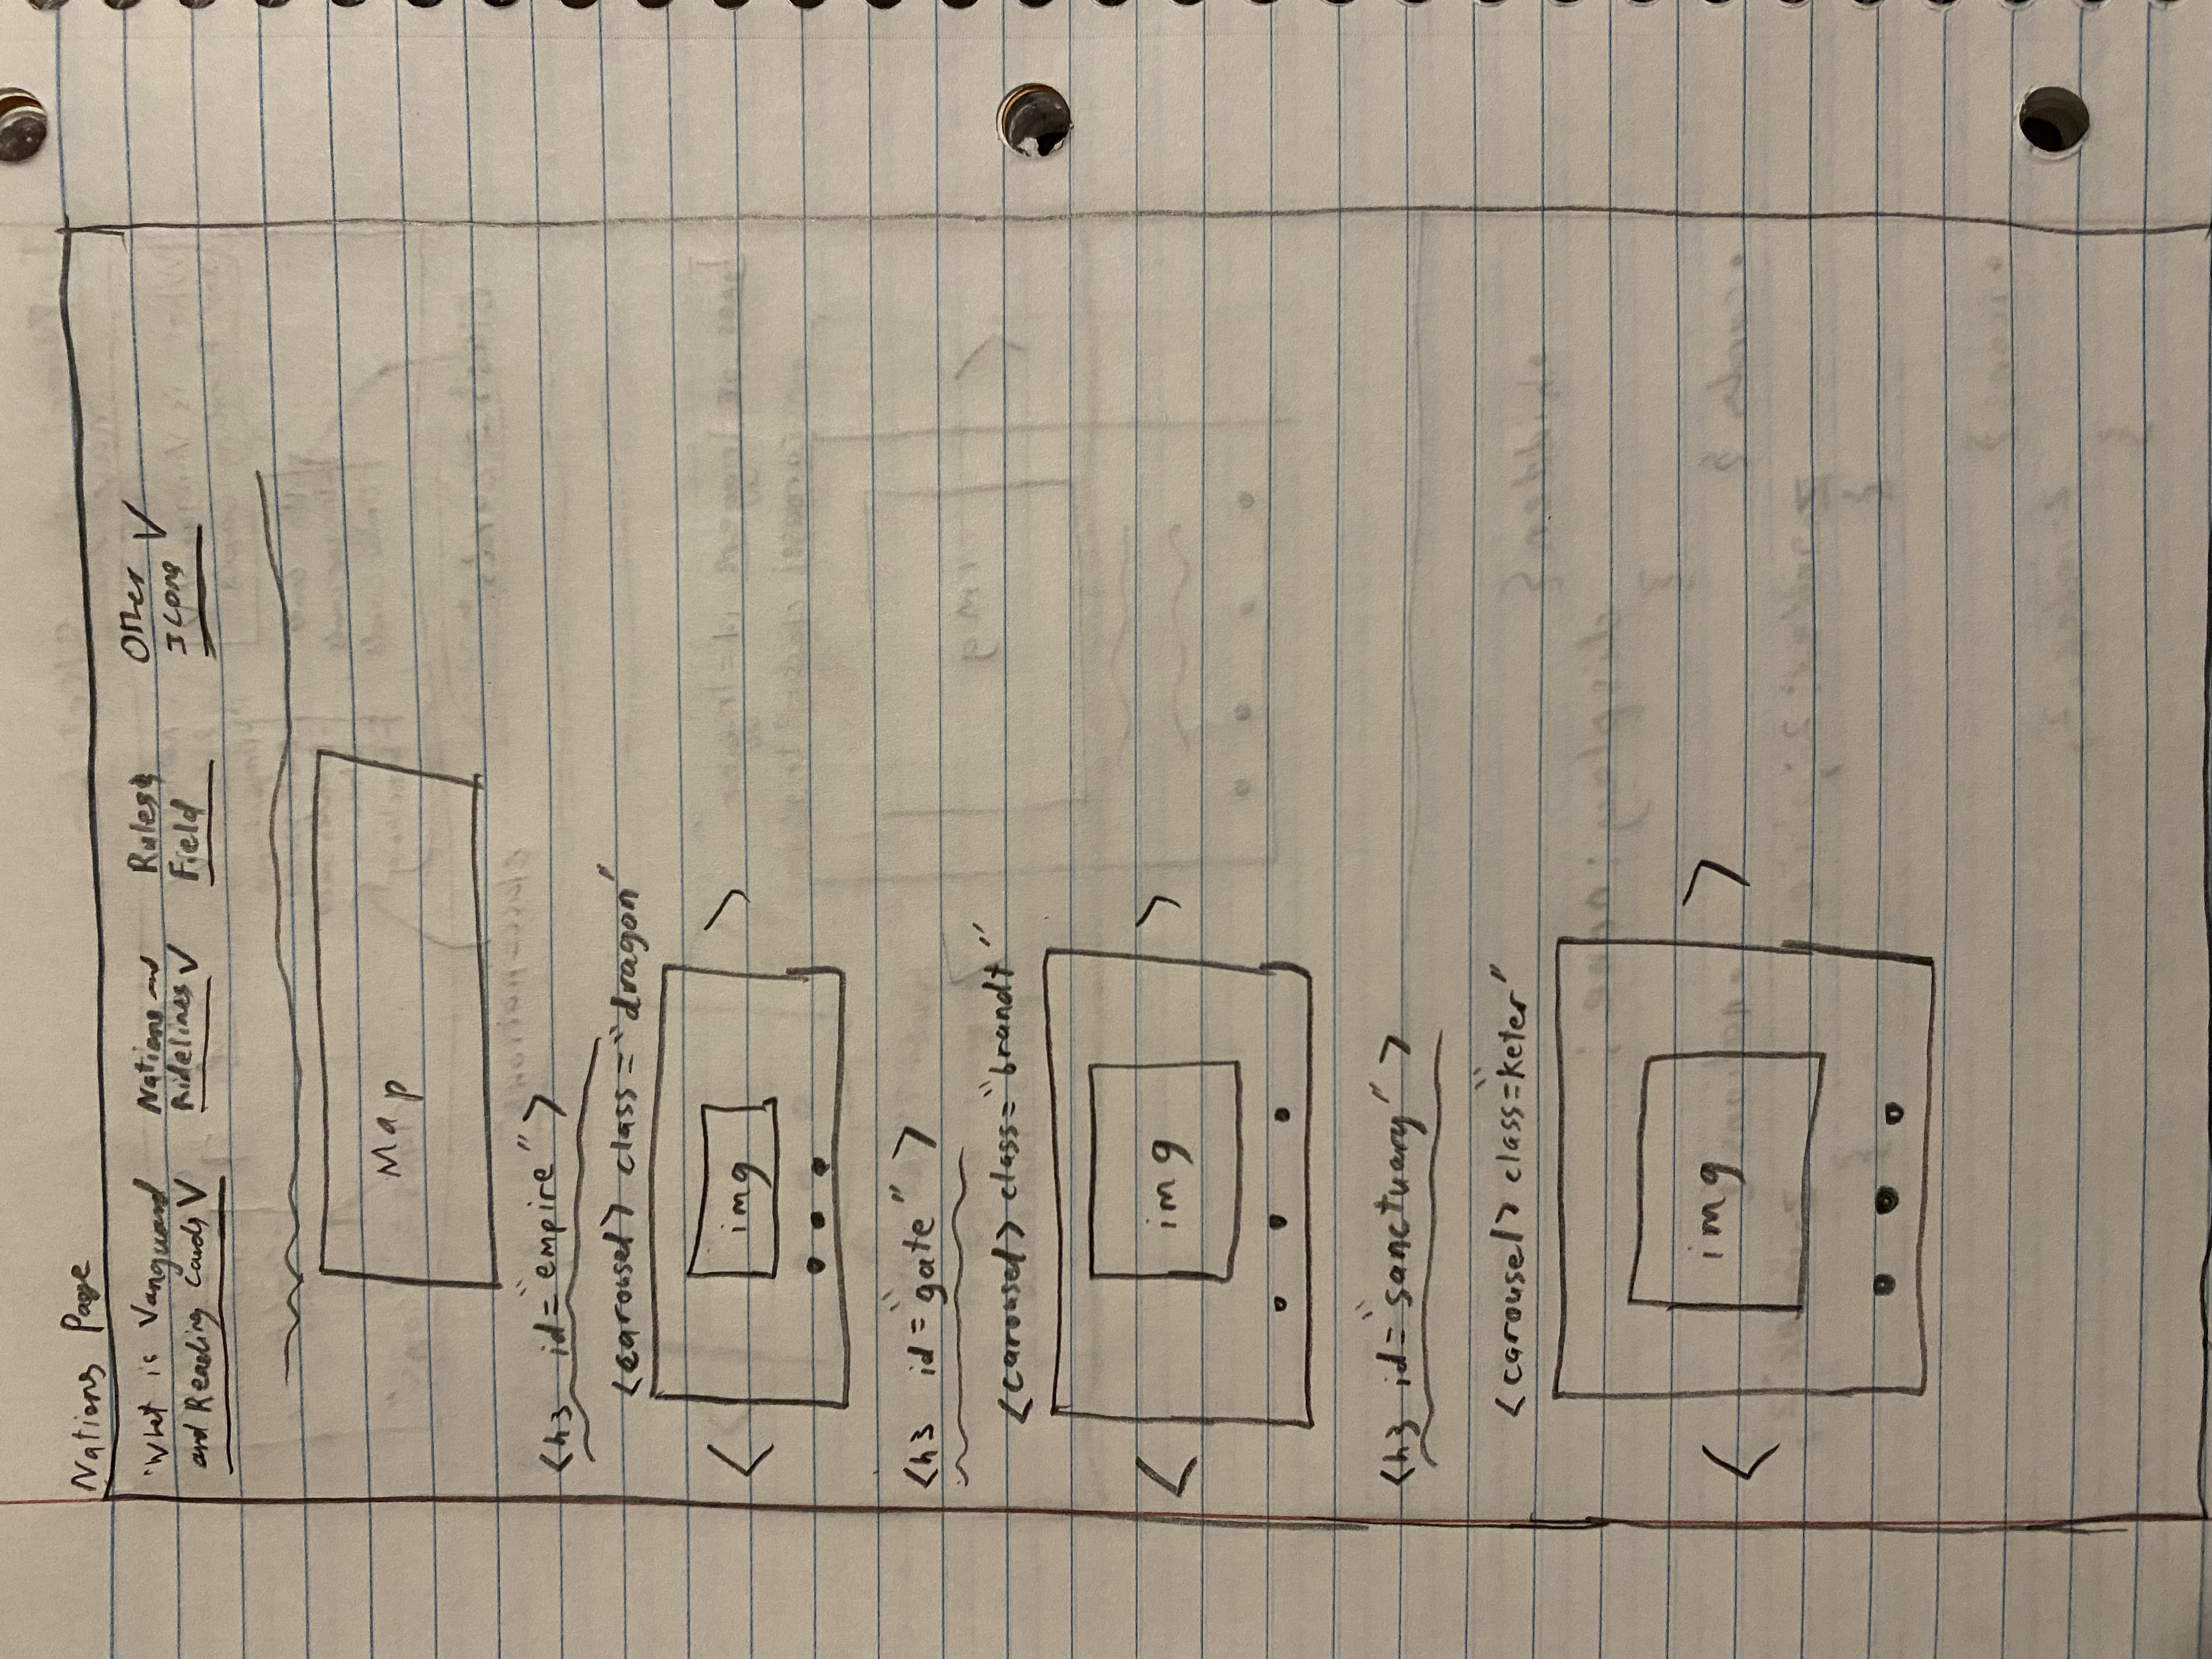 Nations Page
What is Vanguard
and Reading Cards V
Nations and
Ridelines V
Rules &
Field
Other V
Icons
Map
<h3 id="empire">
<carousel> class="dragon"
< img >
<h3 id="gate">
<carousel> class="brandt"
< img >
<h3 id="sanctuary">
<carousel> class="keter"
< img >